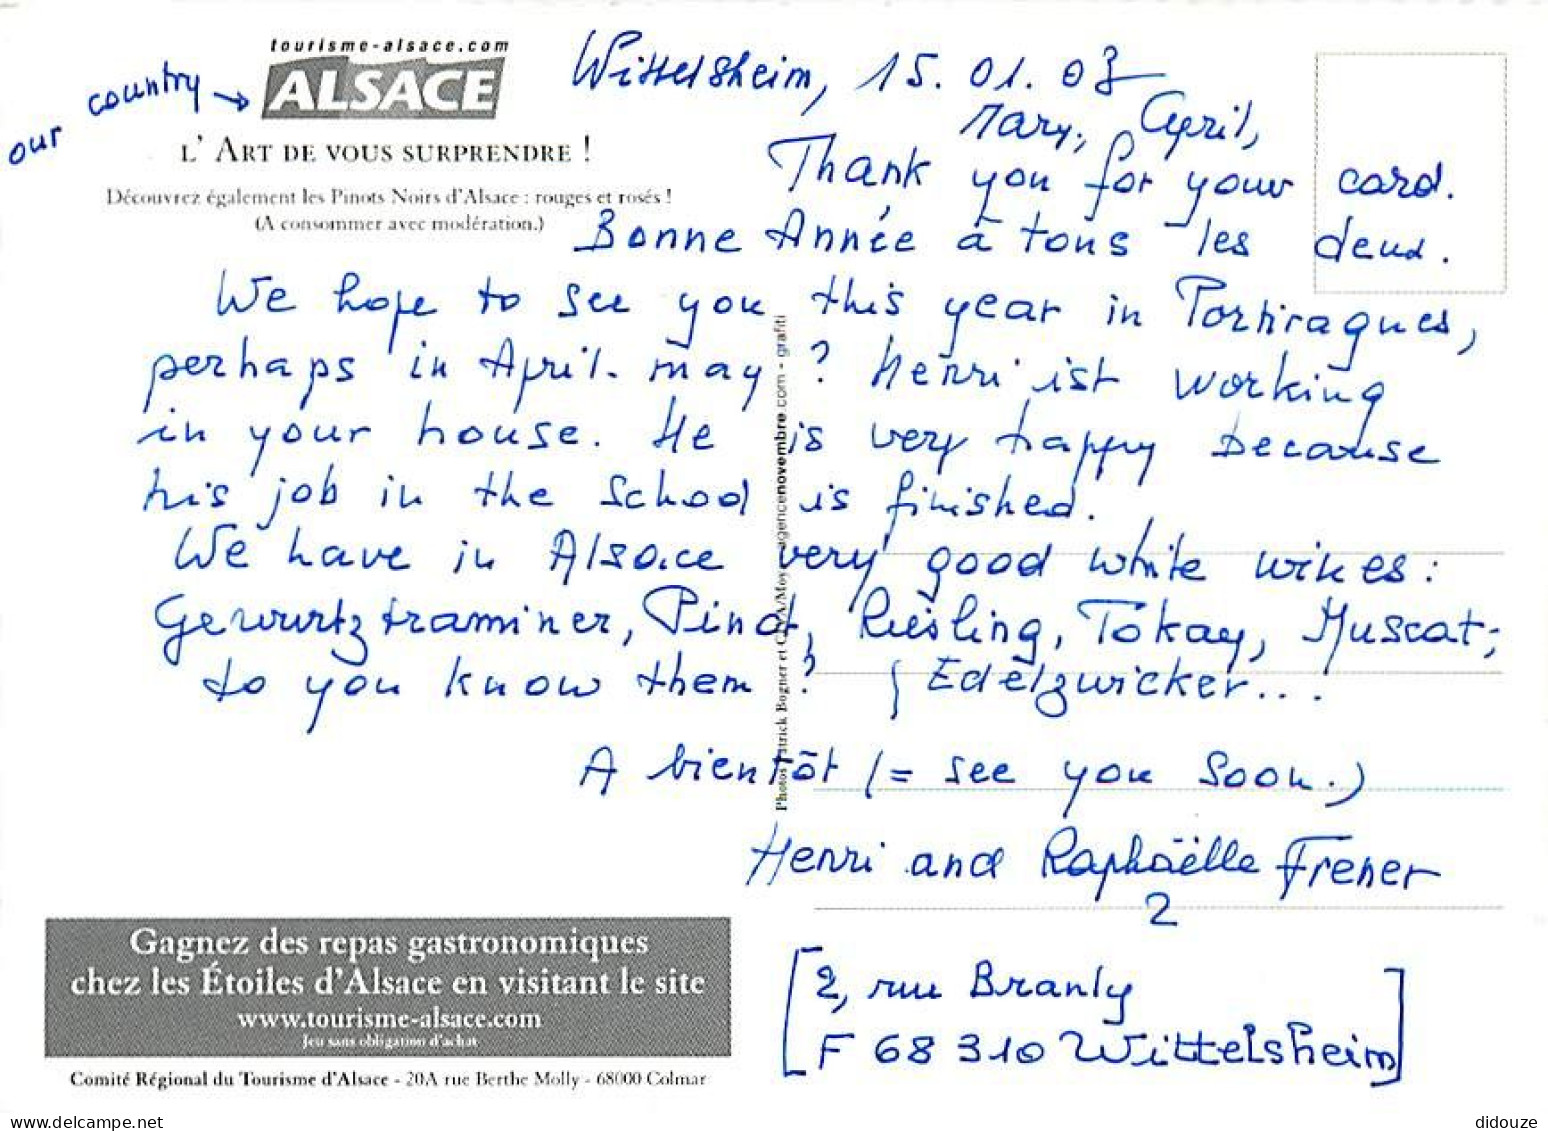 tourisme-alsace.com
our country → ALSACE
L' ART DE VOUS SURPRENDRE !
Découvrez également les Pinots Noirs d'Alsace : rouges et rosés !
(A consommer avec modération.)
Wittelsheim, 15. 01. 03
Mary, Cyril,
Thank you for your card.
Bonne Année à tous les deux.
We hope to see you this year in Portiragues,
perhaps in April - may ? Henri ist working
in your house. He is very happy because
his job in the school is finished.
We have in Alsace very good white wines :
Gewurtztraminer, Pinot, Riesling, Tokay, Muscat ;
to you know them ? { Edelzwicker...
A bientôt (= see you soon.)
Henri and Raphaëlle Frener
2
[2, rue Branly
F 68 310 Wittelsheim]
Photos Patrick Bogner et CIVA/Moy - agencenovembre.com - grafiti
Gagnez des repas gastronomiques
chez les Étoiles d'Alsace en visitant le site
www.tourisme-alsace.com
Jeu sans obligation d'achat
Comité Régional du Tourisme d'Alsace - 20A rue Berthe Molly - 68000 Colmar
delcampe.net
didouze